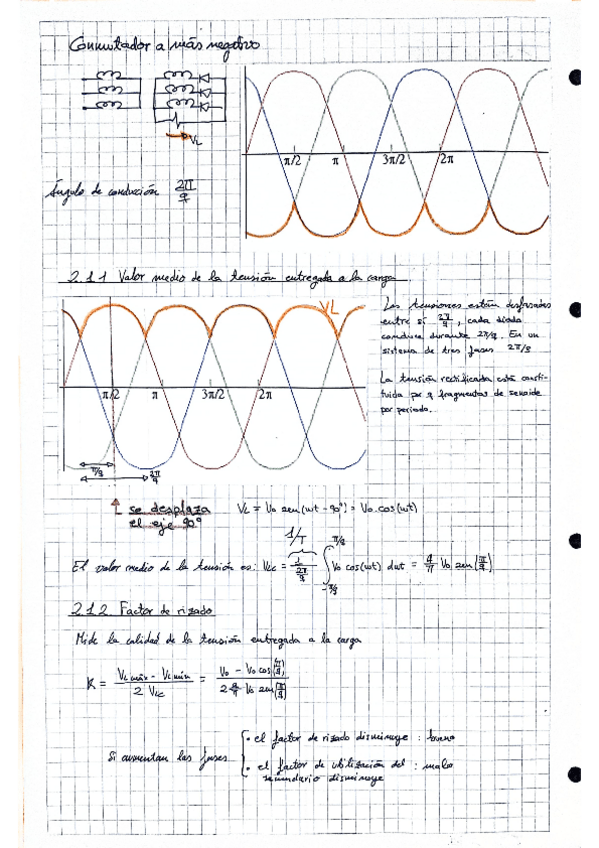 Conmutador a más negativo
VL
π/2 π 3π/2 2π
Ángulo de conducción 2π/q
2.1.1 Valor medio de la tensión entregada a la carga
VL
Las tensiones están desfasadas
entre sí 2π/q, cada diodo
conduce durante 2π/q. En un
sistema de tres fases 2π/3
La tensión rectificada está consti-
tuida por q fragmentos de senoide
por periodo.
π/2 π 3π/2 2π
π/q 2π/q
se desplaza
el eje 90°
VL = Vo sen(wt - 90°) = Vo cos(wt)
1/T
El valor medio de la tensión es: Vcc = 1/(2π/q) ∫ -π/q π/q Vo cos(wt) dwt = q/π Vo sen(π/q)
2.1.2 Factor de rizado
Mide la calidad de la tensión entregada a la carga
K = (VL máx - VL mín)/(2 Vcc) = (Vo - Vo cos(π/q))/(2 q/π Vo sen(π/q))
Si aumentan las fases
• el factor de rizado disminuye : bueno
• el factor de utilización del : malo
secundario disminuye